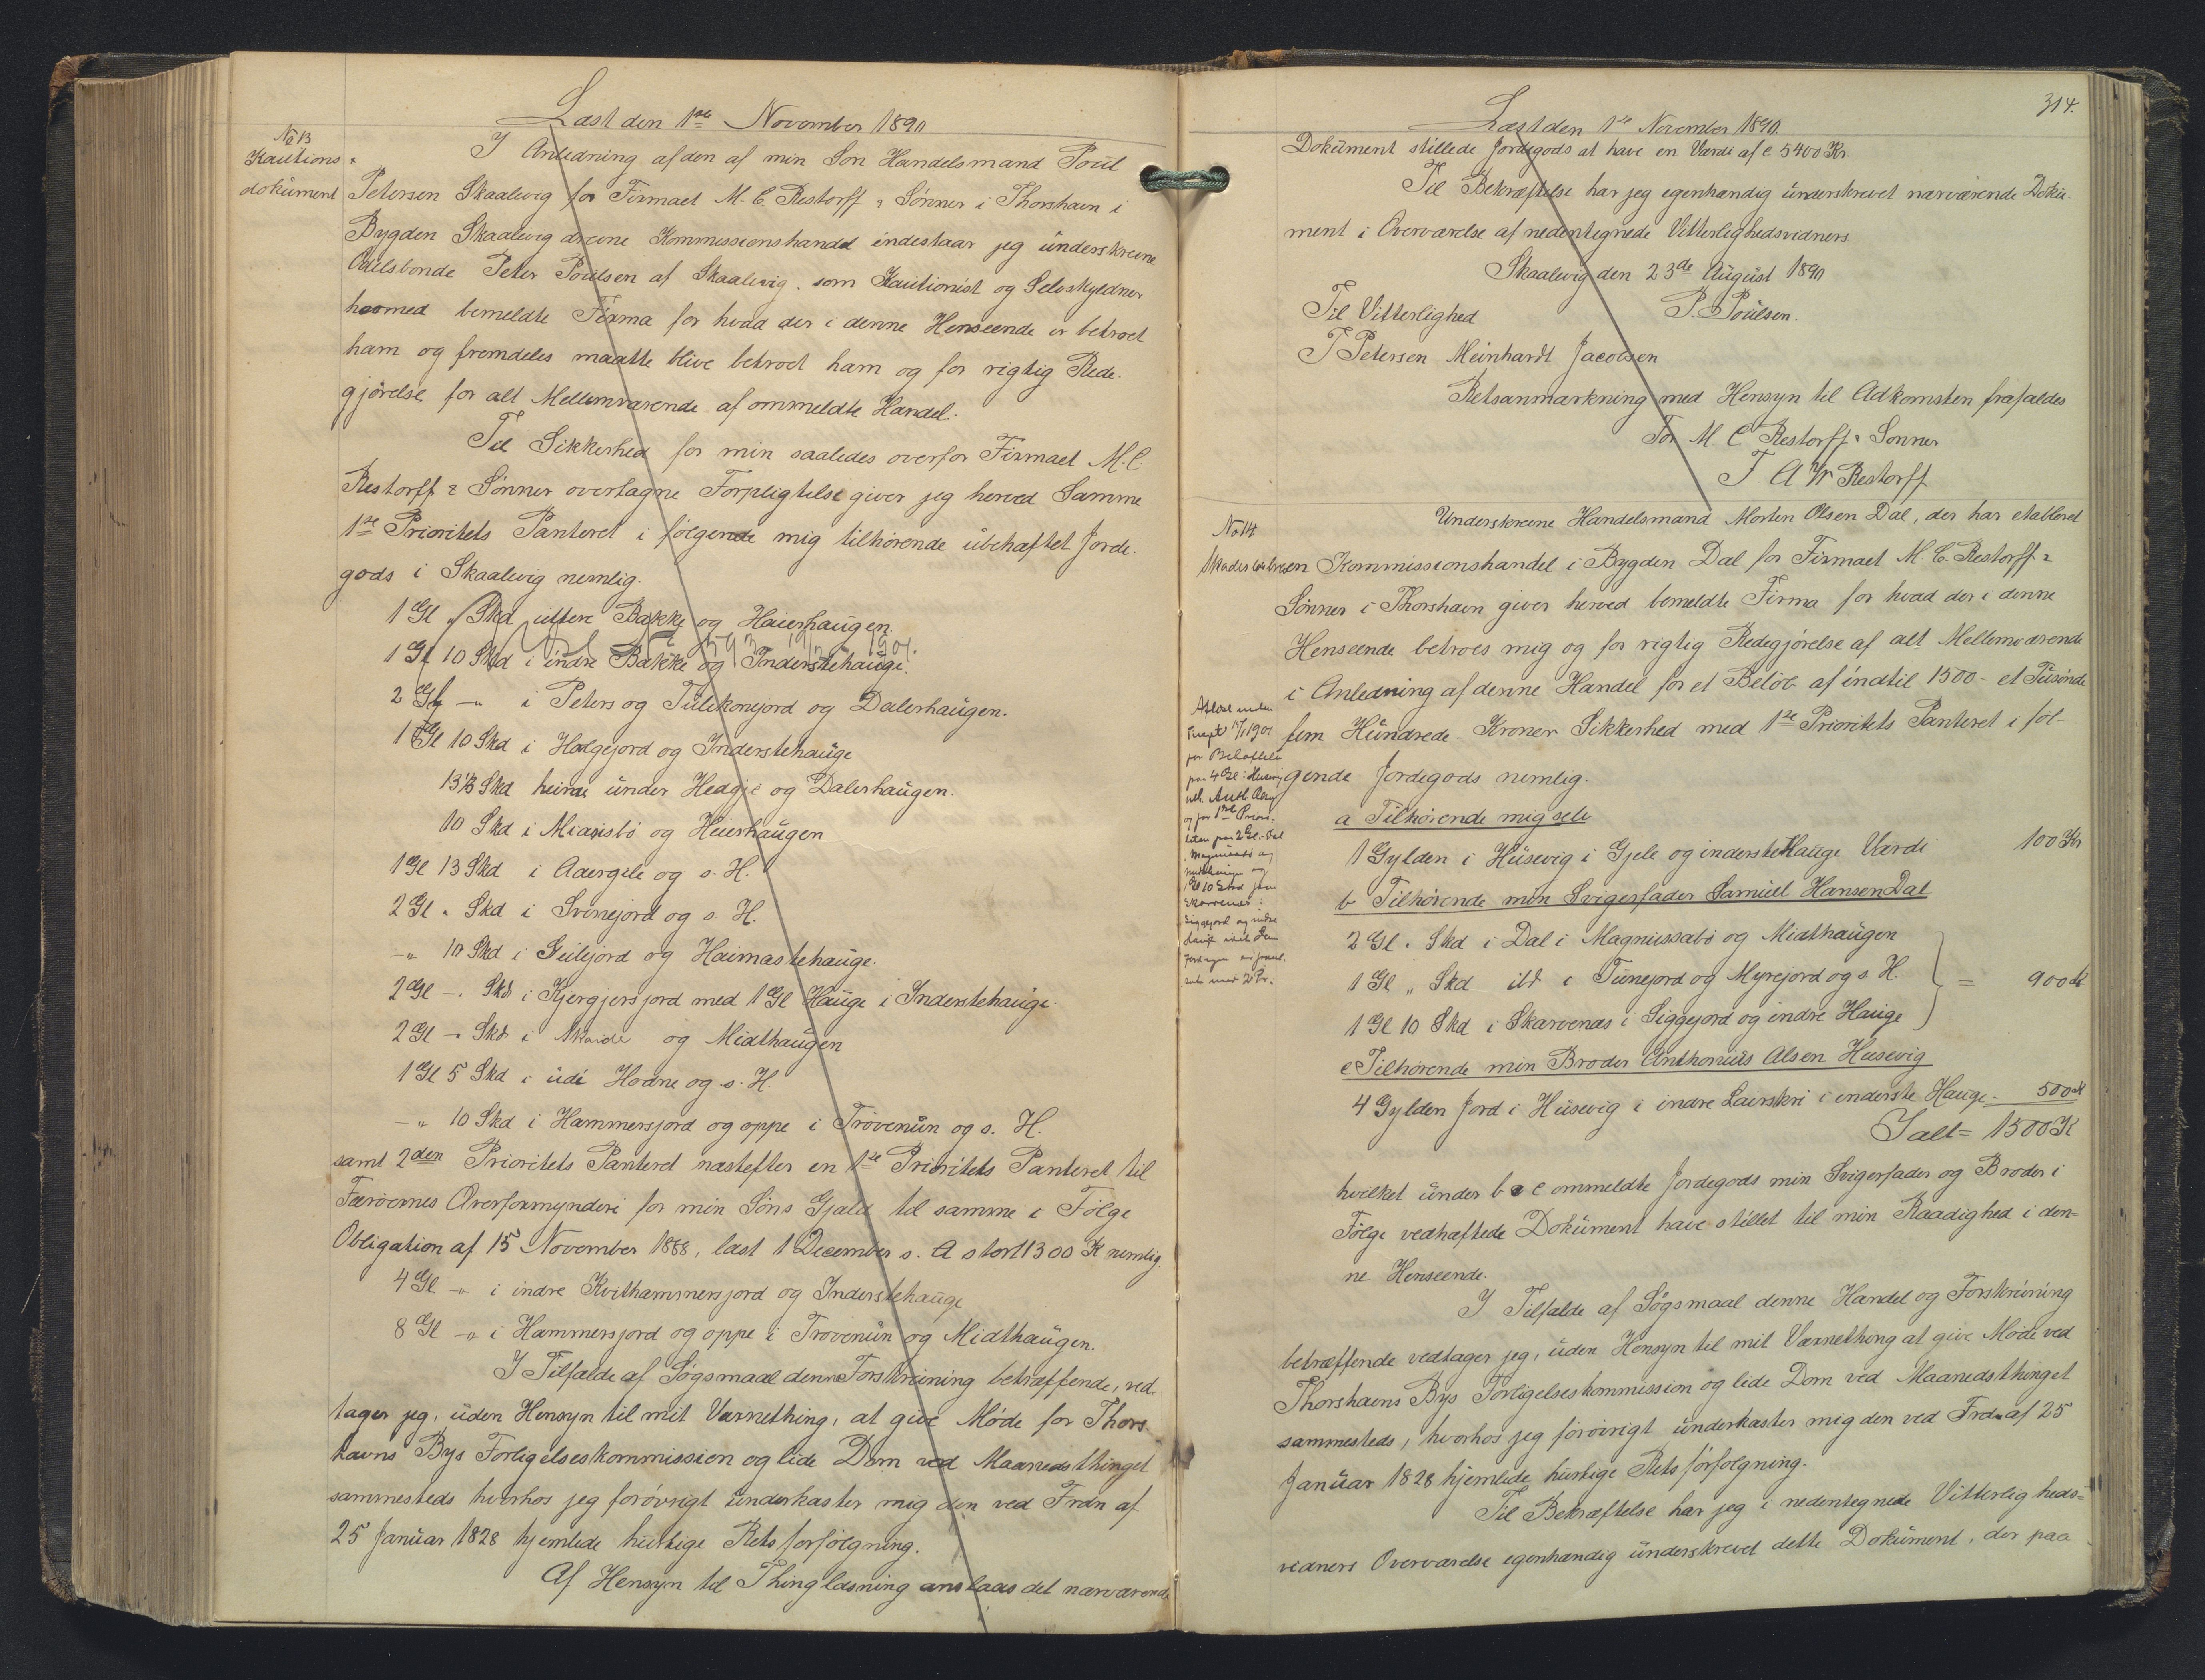 Læst den 1ste November 1890
No 13
Kautions-
dokument
I Anledning af den af min Søn Handelsmand Poul
Petersen Skaalevig for Firmaet M. C. Restorff & Sønner i Thorshavn i
Bygden Skaalevig drevne Kommissionshandel indestaar jeg underskrevne
Odelsbonde Peter Poulsen af Skaalevig, som Kautionist og Selvskyldner
hosmed bemeldte Firma for hvad der i denne Henseende er betroet
ham og fremdeles maatte blive betroet ham og for rigtig Rede-
gjörelse for alt Mellemværende af ommeldte Handel.
Til Sikkerhed for min saaledes overfor Firmaet M. C.
Restorff & Sönner overtagne Forpligtelse giver jeg herved Samme
1ste Prioritets Panteret i følgende mig tilhørende ubehæftet Jorde-
gods i Skaalevig nemlig.
1 Gl " Skd uttere Bakke og Haierhaugen.
1 Gl 10 Skd i indre Bakke og Inderstehauge.
2 Gl -"- i Peters og Tulekonejord og Dalerhaugen.
1 Gl 10 Skd i Hodgejord og Inderstehauge
13⅓ Skd heima under Hedgje og Dalerhaugen.
10 Skd i Miansbö og Heierhaugen
1 Gl 13 Skd i Aaergile og s. H.
2 Gl " Skd i Svinejord og s. H.
-"- 10 Skd i Geilejord og Haimastehauge.
2 Gl -"- Skd i Kjergjersjord med 1 Gl Hauge i Inderstehauge.
2 Gl -"- Skd i Skaide og Midthaugen
1 Gl 5 Skd i udi Hodne og s. H.
-"- 10 Skd i Hammersjord og oppe i Trövenun og s. H.
samt 2den Prioritets Panteret næstefter en 1ste Prioritets Panteret til
Færøernes Overformynderi for min Söns Gjæld til samme i Følge
Obligation af 15 November 1888, læst 1 December s. A stor 1300 K nemlig
4 Gl -"- i indre Kvithammersjord og Inderstehauge
8 Gl -"- i Hammersjord og oppe i Trövenun og Midthaugen.
I Tilfælde af Søgsmaal denne Forskrivning betræffende, ved-
tager jeg, uden Hensyn til mit Værnething, at give Møde for Thors-
havns Bys Forligelseskommission og lide Dom ved Maanedsthinget
sammesteds hvorhos jeg forøvrigt underkaster mig den ved Frdn af
25 Januar 1828 hjemlede hurtige Retsforfølgning.
Af Hensyn til Thinglæsning anslaas det nærværende
314.
Læst den 1ste November 1890.
Dokument stillede Jordegods at have en Værdi af c 5400 Kr.
Til Bekræftelse har jeg egenhændig underskrevet nærværende Doku-
ment i Overværelse af nedentegnede Vitterlighedsvidners.
Skaalevig den 23de August 1890
Til Vitterlighed P. Poulsen.
J Petersen Meinhardt Jacobsen
Retsanmærkning med Hensyn til Adkomsten frafaldes
For M C Restorff & Sønner
T A W Restorff
No 14
Skadesløsbrev
Underskrevne Handelsmand Morten Olsen Dal, der har etableret
en Kommissionshandel i Bygden Dal for Firmaet M. C. Restorff &
Sönner i Thorshavn giver herved bemeldte Firma for hvad der i denne
Henseende betroes mig og for rigtig Redegjörelse af alt Mellemværende
i Anledning af denne Handel for et Beløb af indtil 1500 - et Tusinde
fem Hundrede - Kroner Sikkerhed med 1ste Prioritets Panteret i föl-
gende Jordegods nemlig.
a Tilhørende mig selv
1 Gylden i Husevig i Gjele og inderste Hauge Værdi 100 Kr
b Tilhørende min Svigerfader Samuel Hansen Dal
2 Gl " Skd i Dal i Magnussabö og Midthaugen
1 Gl " Skd ibd i Tunejord og Myrejord og s. H. = 900 K
1 Gl 10 Skd i Skarvenæs i Siggejord og indre Hauge
c Tilhørende min Broder Anthonius Olsen Husevig
4 Gylden Jord i Husevig i indre Lairskri i inderste Hauge - 500 K
Ialt = 1500 K
hvilket under b & c ommeldte Jordegods min Svigerfader og Broder i
Følge vedhæftede Dokument have stillet til min Raadighed i den-
ne Henseende.
I Tilfælde af Søgsmaal denne Handel og Forskrivning
betræffende vedtager jeg, uden Hensyn til mit Værnething at give Møde ved
Thorshavns Bys Forligelseskommission og lide Dom ved Maanedsthinget
sammesteds, hvorhos jeg forøvrigt underkaster mig den ved Frdn af 25
Januar 1828 hjemlede hurtige Retsforfølgning.
Til Bekræftelse har jeg i nedentegnede Vitterligheds-
vidners Overværelse egenhændig underskrevet dette Dokument, der paa